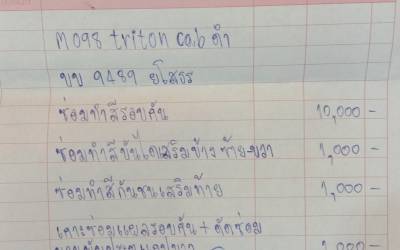 M098 triton cab ดำ
บบ 9489 ยโสธร
ซ่อมทำสีรอบคัน 10,000 -
ซ่อมทำสีบันไดเสริมข้าง ซ้าย-ขวา 1,000 -
ซ่อมทำสีกันชนเสริมท้าย 1,000 -
เคาะซ่อมแผลรอบคัน + ดัดซ่อม